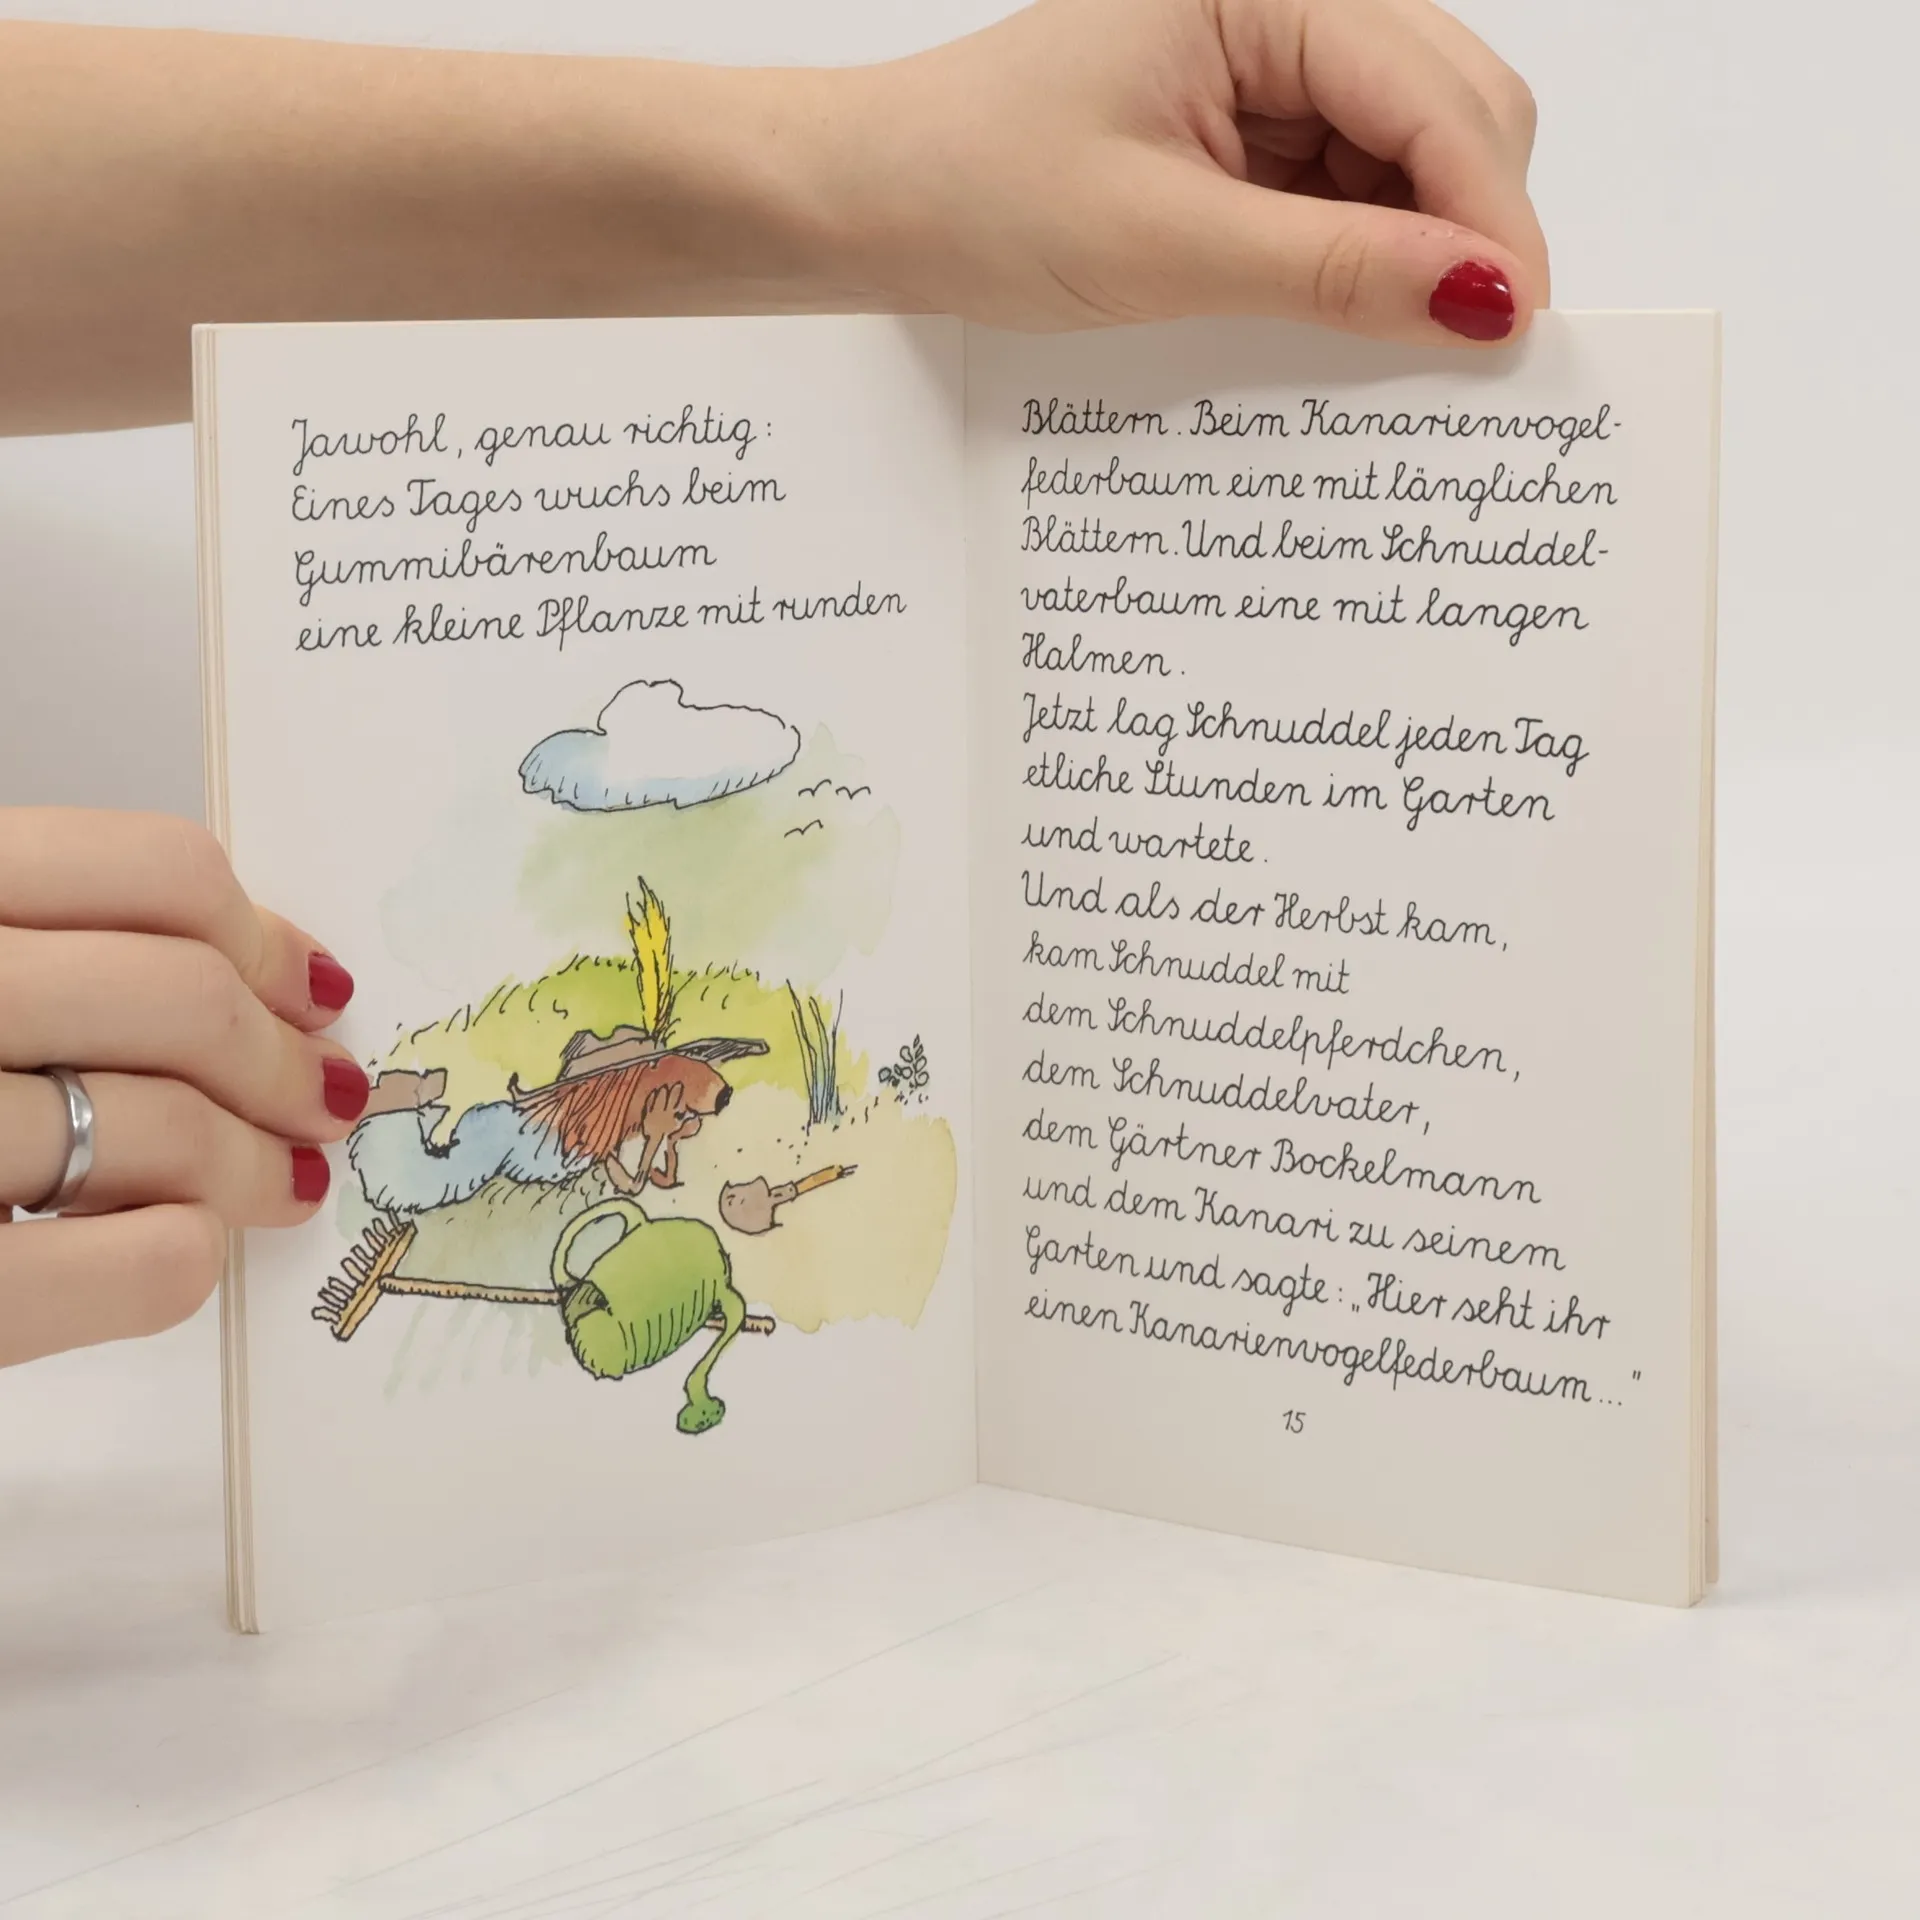 Jawohl, genau richtig:
Eines Tages wuchs beim
Gummibärenbaum
eine kleine Pflanze mit runden
Blättern. Beim Kanarienvogel-
federbaum eine mit länglichen
Blättern. Und beim Schnuddel-
vaterbaum eine mit langen
Halmen.
Jetzt lag Schnuddel jeden Tag
etliche Stunden im Garten
und wartete.
Und als der Herbst kam,
kam Schnuddel mit
dem Schnuddelpferdchen,
dem Schnuddelvater,
dem Gärtner Bockelmann
und dem Kanari zu seinem
Garten und sagte: „Hier seht ihr
einen Kanarienvogelfederbaum..."
15